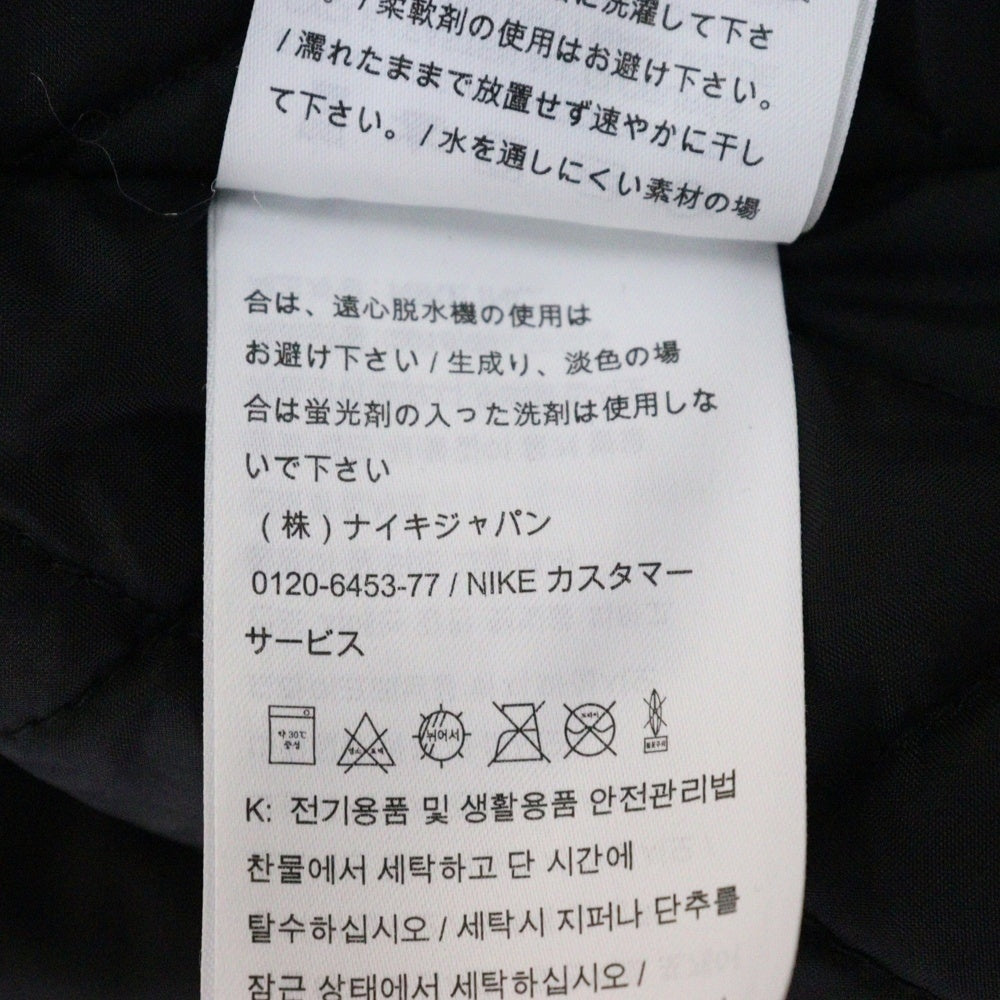 に洗濯して下さ
。/ 柔軟剤の使用はお避け下さい。
/ 濡れたままで放置せず速やかに干し
て下さい。 / 水を通しにくい素材の場
合は、遠心脱水機の使用は
お避け下さい / 生成り、淡色の場
合は蛍光剤の入った洗剤は使用しな
いで下さい
(株)ナイキジャパン
0120-6453-77 / NIKE カスタマー
サービス
약 30℃ 중성 염소 표백 뉘어서 드라이
K: 전기용품 및 생활용품 안전관리법
찬물에서 세탁하고 단 시간에
탈수하십시오 / 세탁시 지퍼나 단추를
잠근 상태에서 세탁하십시오 /